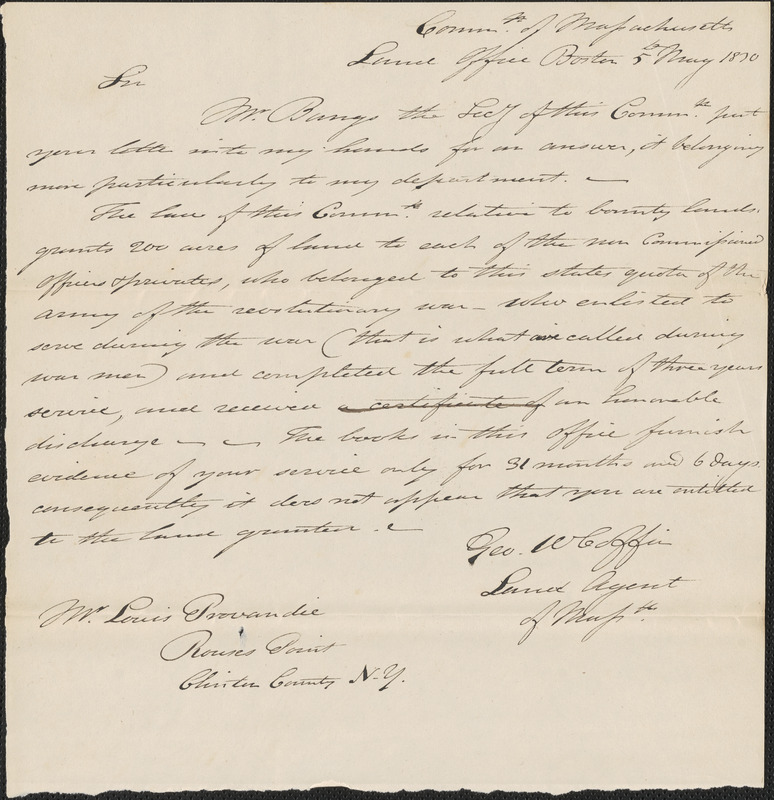 Commth. of Massachusetts
Land Office Boston 5th May 1830
Sir
Mr. Bangs the Secy of this Commth. put
your letter into my hands for an answer, it belonging
more particularly to my department. –
The law of this Commth. relative to bounty lands
grants 200 acres of land to each of the non Commissioned
Officers & privates, who belonged to this states quota of the
army of the revolutionary war – who enlisted to
serve during the war (that is what are called during
war men) and completed the full term of three years
service, and received a certificate of an honorable
discharge – – The books in this office furnish
evidence of your service only for 31 months and 6 days
consequently it does not appear that you are entitled
to the land granted. –
Geo. W Coffin
Land Agent
of Massts.
Mr. Louis Provandie
Rouses Point
Clinton County N.Y.